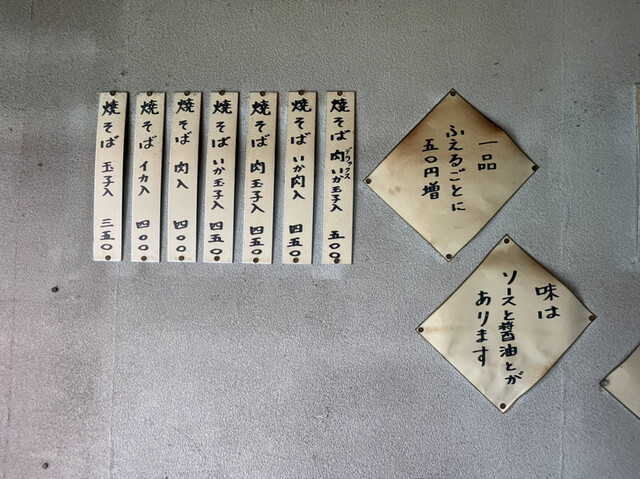 焼そば 肉いか玉子入 五〇〇
デラックス
焼そば いか肉入 四五〇
焼そば 肉玉子入 四五〇
焼そば いか玉子入 四五〇
焼そば 肉入 四〇〇
焼そば イカ入 四〇〇
焼そば 玉子入 三五〇
一品
ふえるごとに
五〇円増
味は
ソースと醤油とが
あります